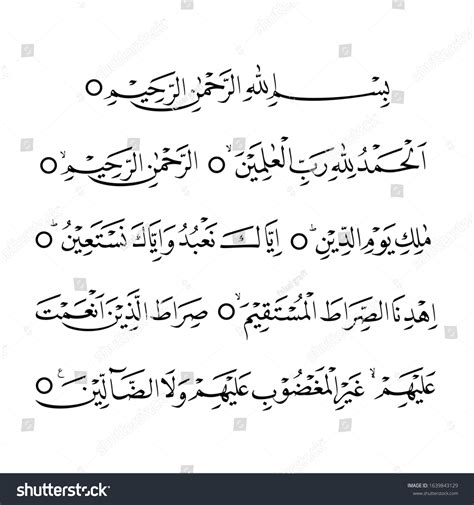 بِسْمِ اللهِ الرَّحْمٰنِ الرَّحِيْمِ ○
اَلْحَمْدُ لِلّٰهِ رَبِّ الْعٰلَمِيْنَ ۙ○ الرَّحْمٰنِ الرَّحِيْمِ ۙ○
مٰلِكِ يَوْمِ الدِّيْنِ ؕ○ اِيَّاكَ نَعْبُدُ وَاِيَّاكَ نَسْتَعِيْنُ ؕ○
اِهْدِنَا الصِّرَاطَ الْمُسْتَقِيْمَ ۙ○ صِرَاطَ الَّذِيْنَ اَنْعَمْتَ
عَلَيْهِمْ ۙ غَيْرِ الْمَغْضُوْبِ عَلَيْهِمْ وَلَا الضَّآلِّيْنَ ○
shutterstock
IMAGE ID: 1639843129
www.shutterstock.com